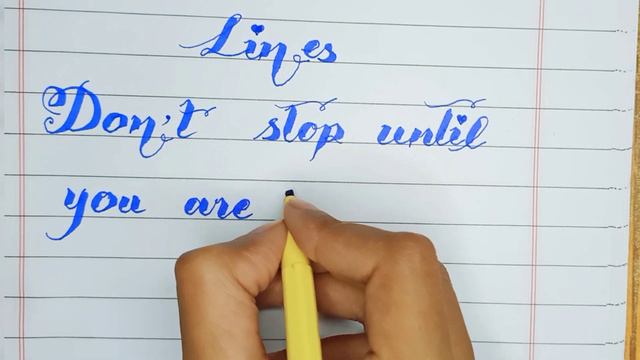 Lines
Don't stop until
you are